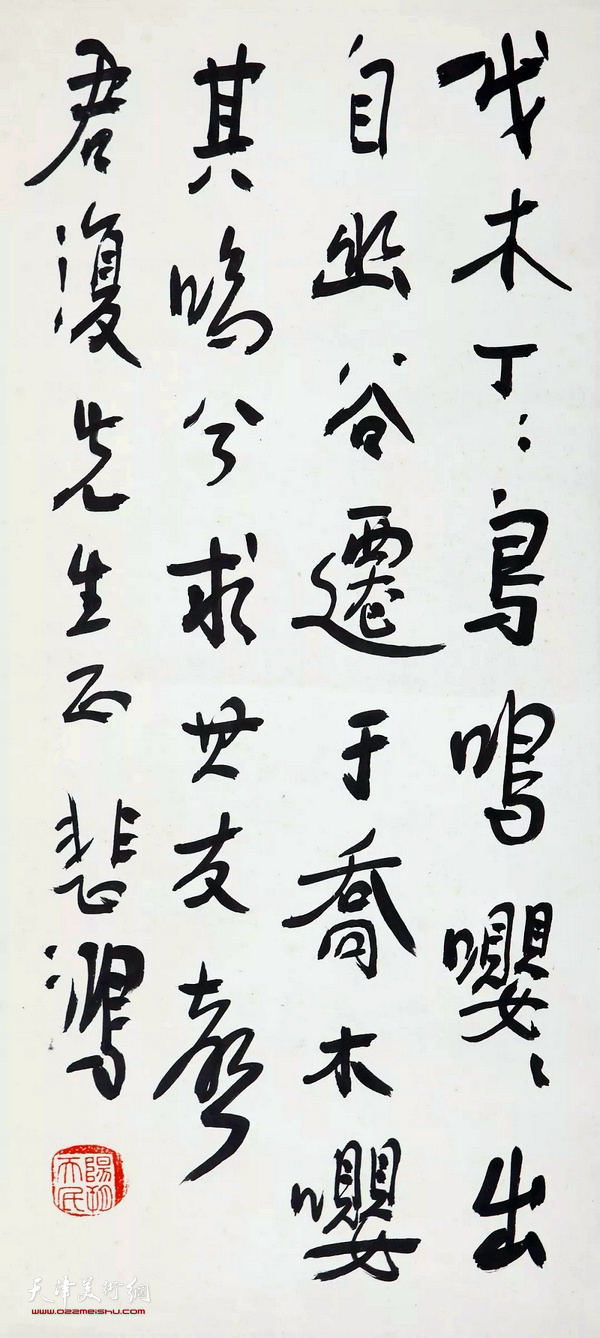 伐木丁〻鳥鳴嚶〻出
自幽谷遷于喬木嚶
其鳴兮求其友聲
君復先生正 悲鴻
陽朔天民
天津美术網
www.022meishu.com